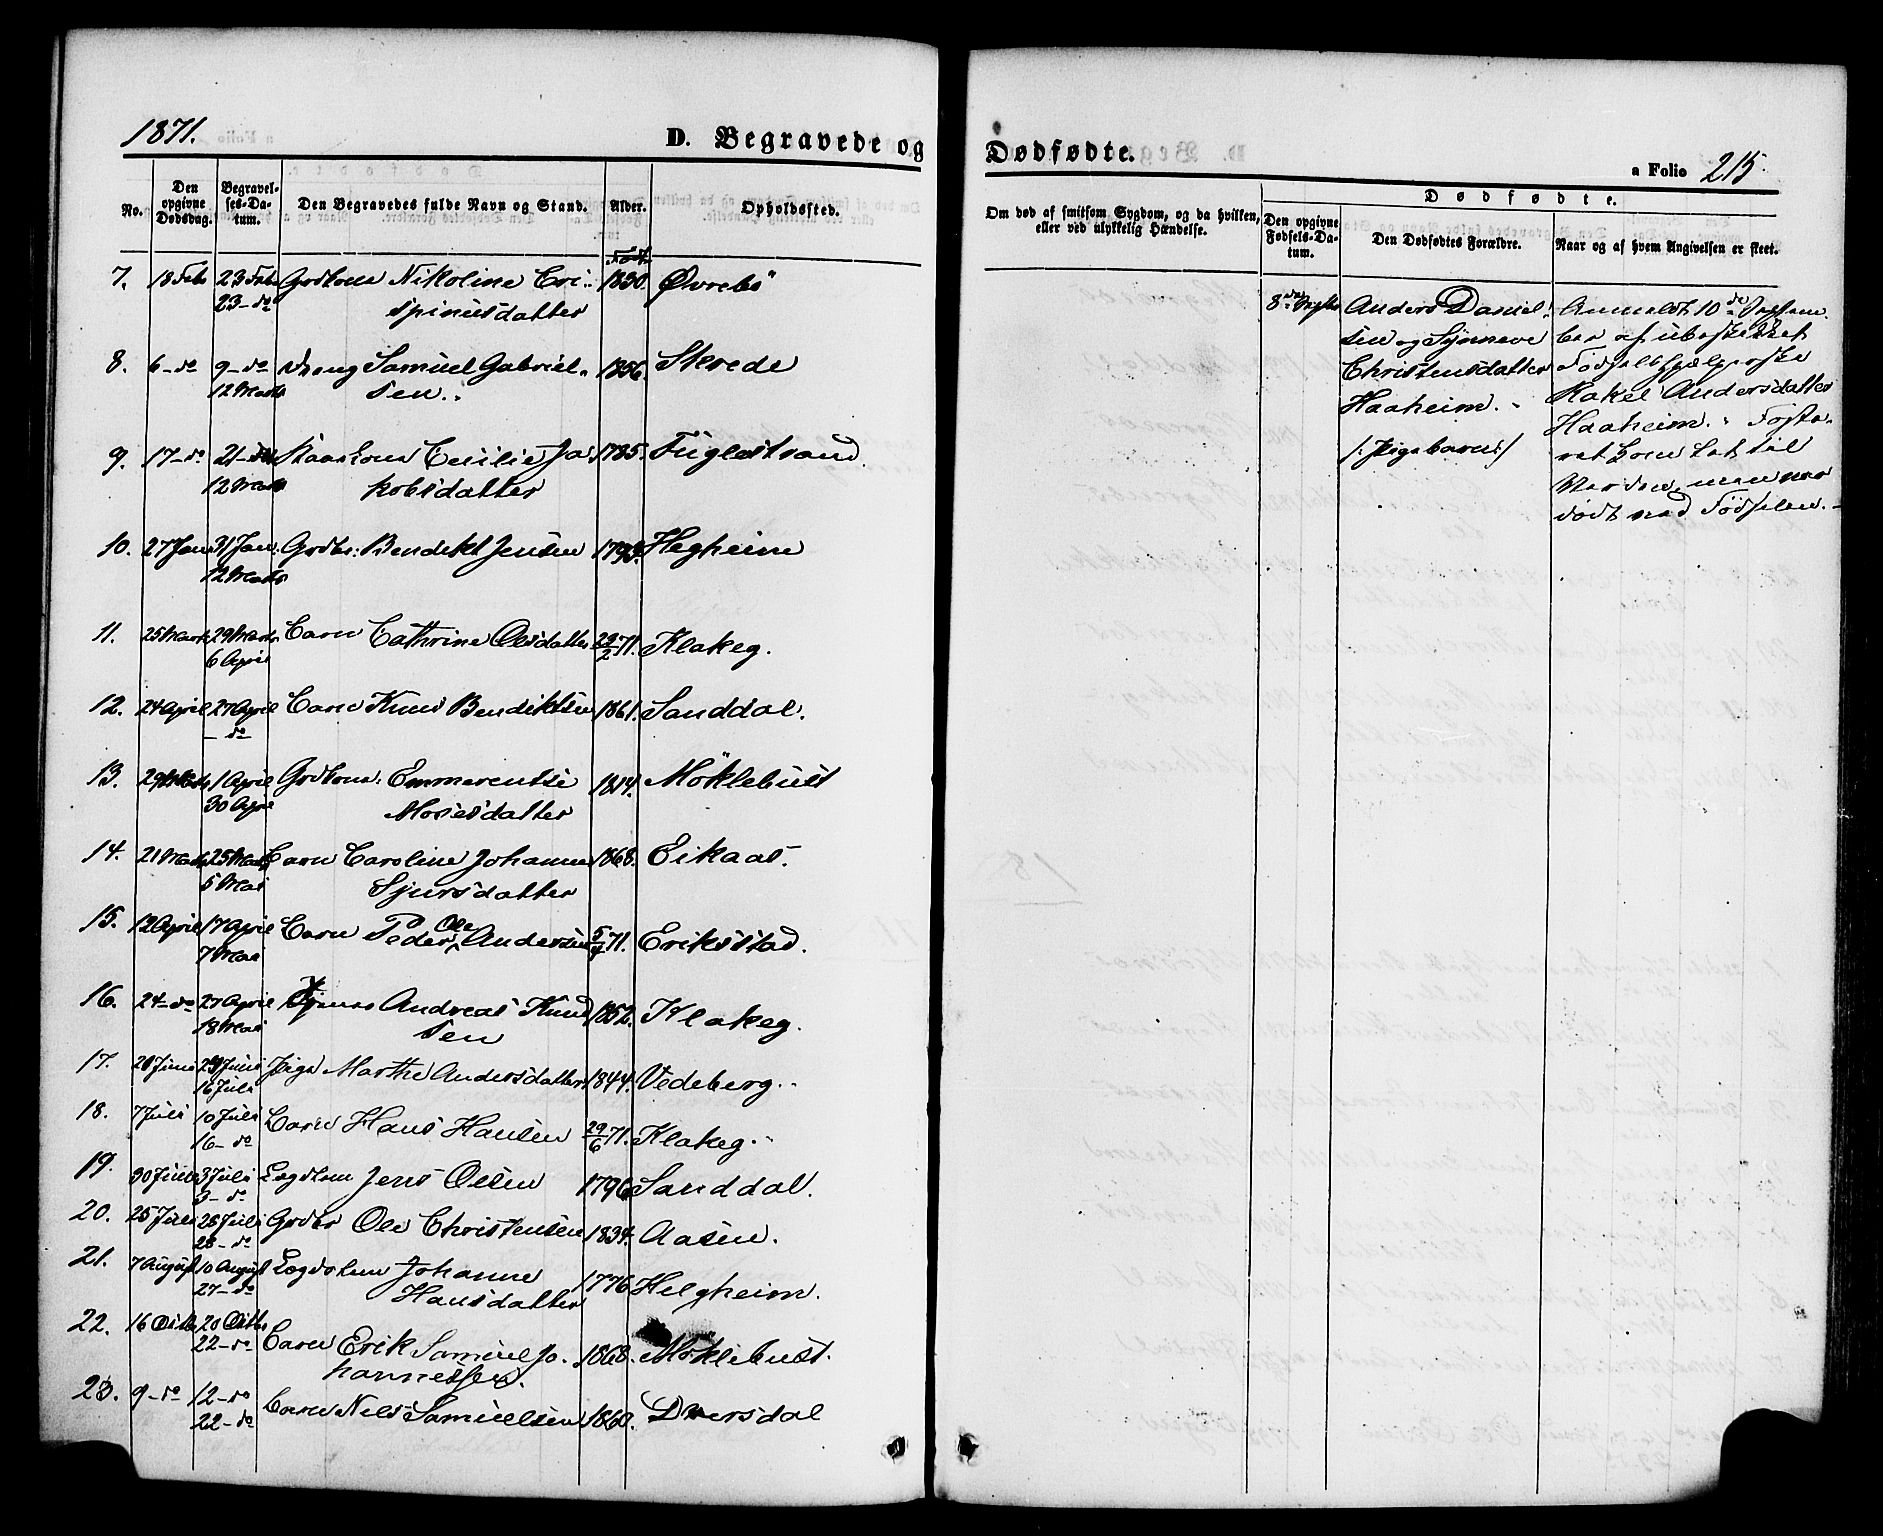 1871.
D. Begravede og
Dødfødte.
a Folio 215.
No.
Den opgivne Dødsdag.
Begravelses-Datum.
Den Begravedes fulde Navn og Stand.
Alder.
Opholdssted.
Om død af smitsom Sygdom, og da hvilken, eller ved ulykkelig Hændelse.
Dødfødte.
Den opgivne Fødsels-Datum.
Den Dødfødtes Forældre.
Naar og af hvem Angivelsen er skeet.
Født
7. 18 Febr 23 Febr Grdkona Nikoline Cri- 1830. Øvrebö
23 - do spinusdatter
8. 6 - do 9 - do Dreng Samuel Gabriel- 1856. Skrede
12 Marts sen.
9. 17 - do 21 - do Kaarkona Cecilie Ja 1785. Fuglestrand
12 Marts kobsdatter
10. 27 Jan 31 Jan: Grdbr: Bendikt Jensen 1793. Hegheim
12 Marts
11. 25 Marts 29 Marts Barn Cathrine Olsdatter 29/2 71. Klakeg.
6 April
12. 24 April 27 April Barn Knud Bendiktsen 1861. Sanddal.
- do
13. 29 Marts 1 April Grdkona: Emmerentse 1814. Möklebust
30 April Mosesdatter
14. 21 Marts 25 Marts Barn Caroline Johanne 1868. Eikaas.
5 Mai Sjursdatter
15. 12 April 17 April Barn Peder Ole Andersen 5/4 71. Eriksstad.
7 Mai
16. 24 - do 27 April Andreas Knud 1852. Klakeg.
18 Mai sen
17. 20 Juni Juni Pige Marthe Andersdatter 1844. Vedeberg.
16 Juli
18. 7 Juli 10 Juli Barn Hans Hansen 29/6 71. Klakeg.
16 - do
19. 30 Juni 3 Juli Lægdslem Jens Olsen 1796 Sanddal.
3 - do
20. 25 Juli 28 Juli Grdbr Ole Christensen 1834. Aasen.
28 - do
21. 7 August 10 August Lægdslem Johanne 1776 Helgheim.
27 - do Hansdatter
22. 16 Octbr 20 Octbr Barn Erik Samuel Jo- 1868. Möklebust.
22 - do hannessen.
23. 9 - do 12 - do Barn Nils Samuelsen 1860. Dvergsdal
22 - do
8de Septbr Anders Daniel-
sen og Synneve
Christensdatter
Haaheim.
/: Pigebarn :/
Anmeldt 10de Septem-
ber af ubeskikket
Fødselshjælperske
Rakel Andersdatter
Haaheim. Foste-
ret kom let til
Verden, men var
dødt ved Fødselen.